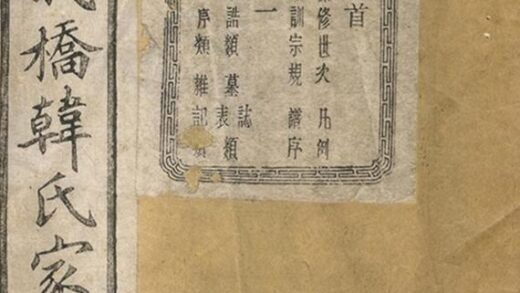 首
修世次 凡例
訓宗規 譜序
一
誥類 墓誌表類
序類 雜記
橋韓氏家